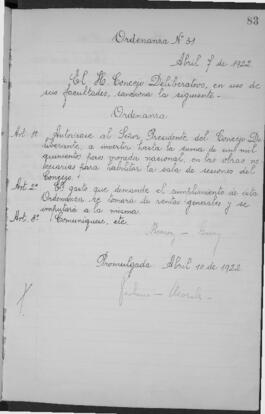 83
Ordenanza Nº 31
Abril 7 de 1922
El H. Concejo Deliberativo, en uso de
sus facultades, sanciona la siguiente.-
Ordenanza
Art. 1º Autorízase al Señor Presidente del Concejo De
liberante, a invertir hasta la suma de un mil
quinientos pesos moneda nacional, en las obras ne
cesarias para habilitar la sala de sesiones del
Concejo.
Art. 2º El gasto que demande el cumplimiento de esta
Ordenanza se tomará de rentas generales y se
imputará a la misma
Art. 3º Comuníquese, etc.
Promulgada Abril 10 de 1922